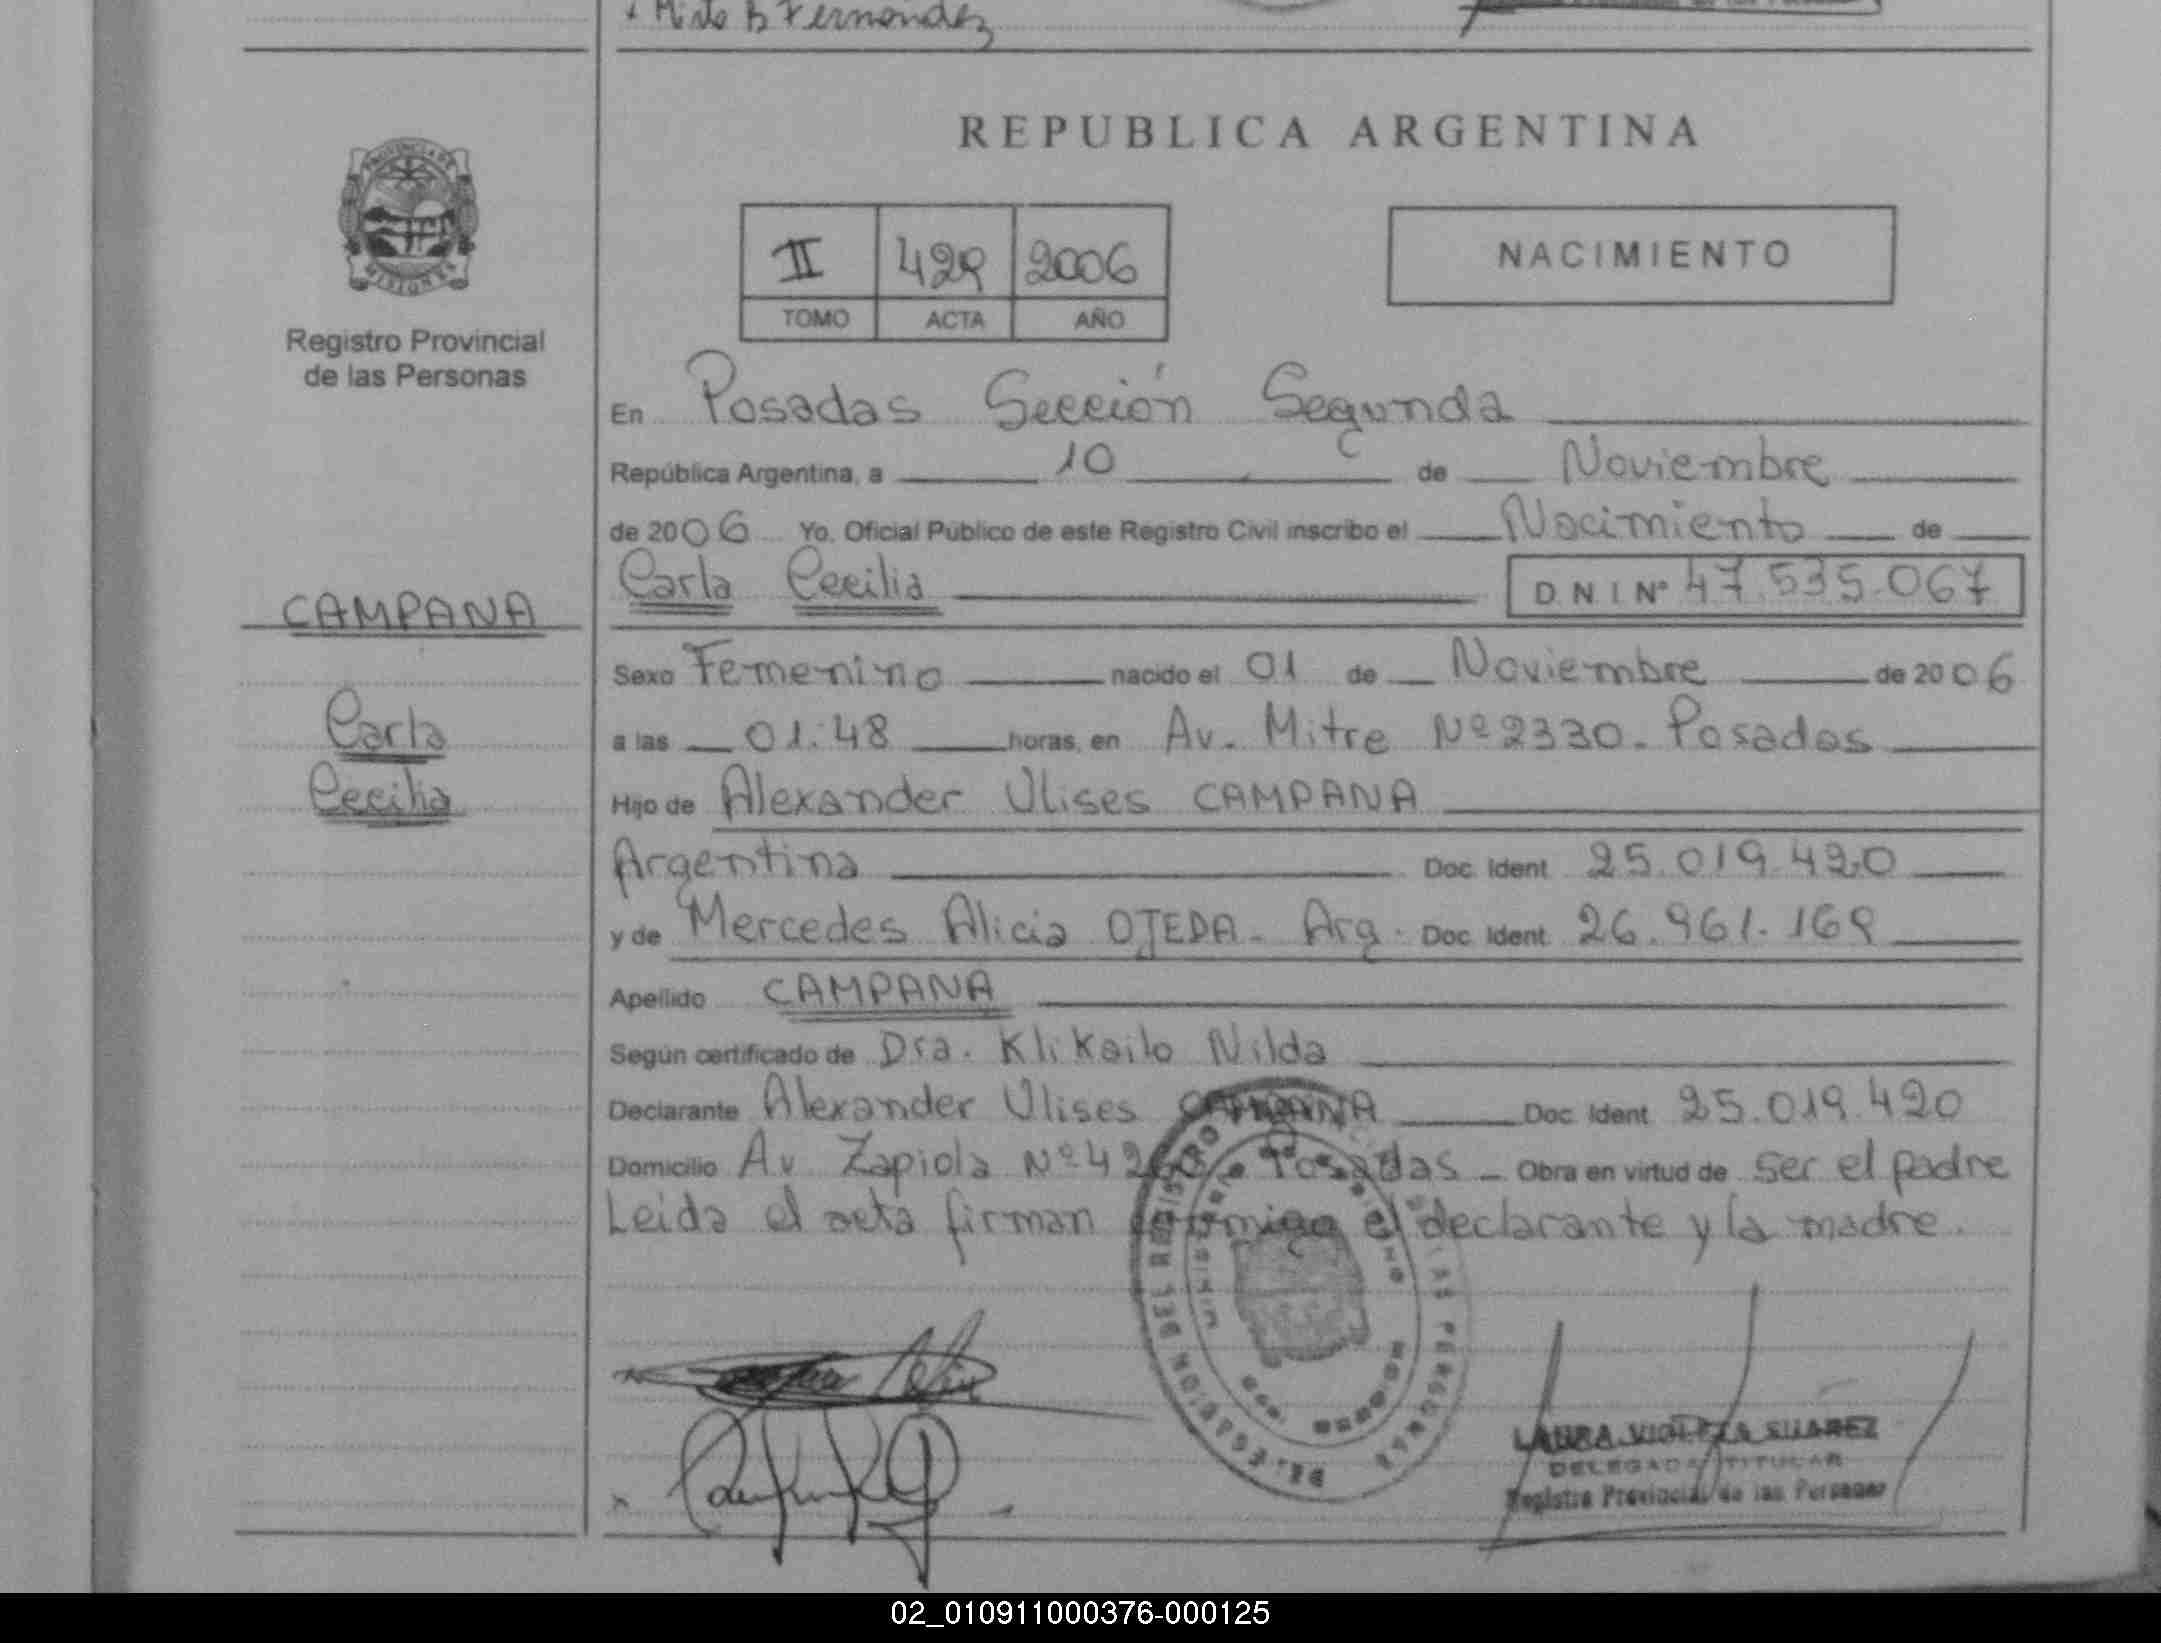 Mirta B Fernandez
PROVINCIA DE
MISIONES
Registro Provincial
de las Personas
CAMPANA
Carla
Cecilia
REPUBLICA ARGENTINA
II 429 2006
TOMO ACTA AÑO
NACIMIENTO
En Posadas Sección Segunda
República Argentina, a 10 de Noviembre
de 2006 Yo. Oficial Público de este Registro Civil inscribo el Nacimiento de
Carla Cecilia D N I Nº 47.535.067
Sexo Femenino nacido el 01 de Noviembre de 2006
a las 01:48 horas, en Av. Mitre Nº 2330. Posadas
Hijo de Alexander Ulises CAMPANA
Argentina Doc. Ident. 25.019.420
y de Mercedes Alicia OJEDA. Arg. Doc. Ident. 26.961.169
Apellido CAMPANA
Según certificado de Dra. Klikailo Nilda
Declarante Alexander Ulises CAMPANA Doc. Ident. 25.019.420
Domicilio Av Zapiola Nº Posadas - Obra en virtud de ser el padre
Leida el acta firman conmigo el declarante y la madre.
LAURA VIOLETA SUAREZ
DELEGADA TITULAR
Registro Provincial de las Personas
02_010911000376-000125